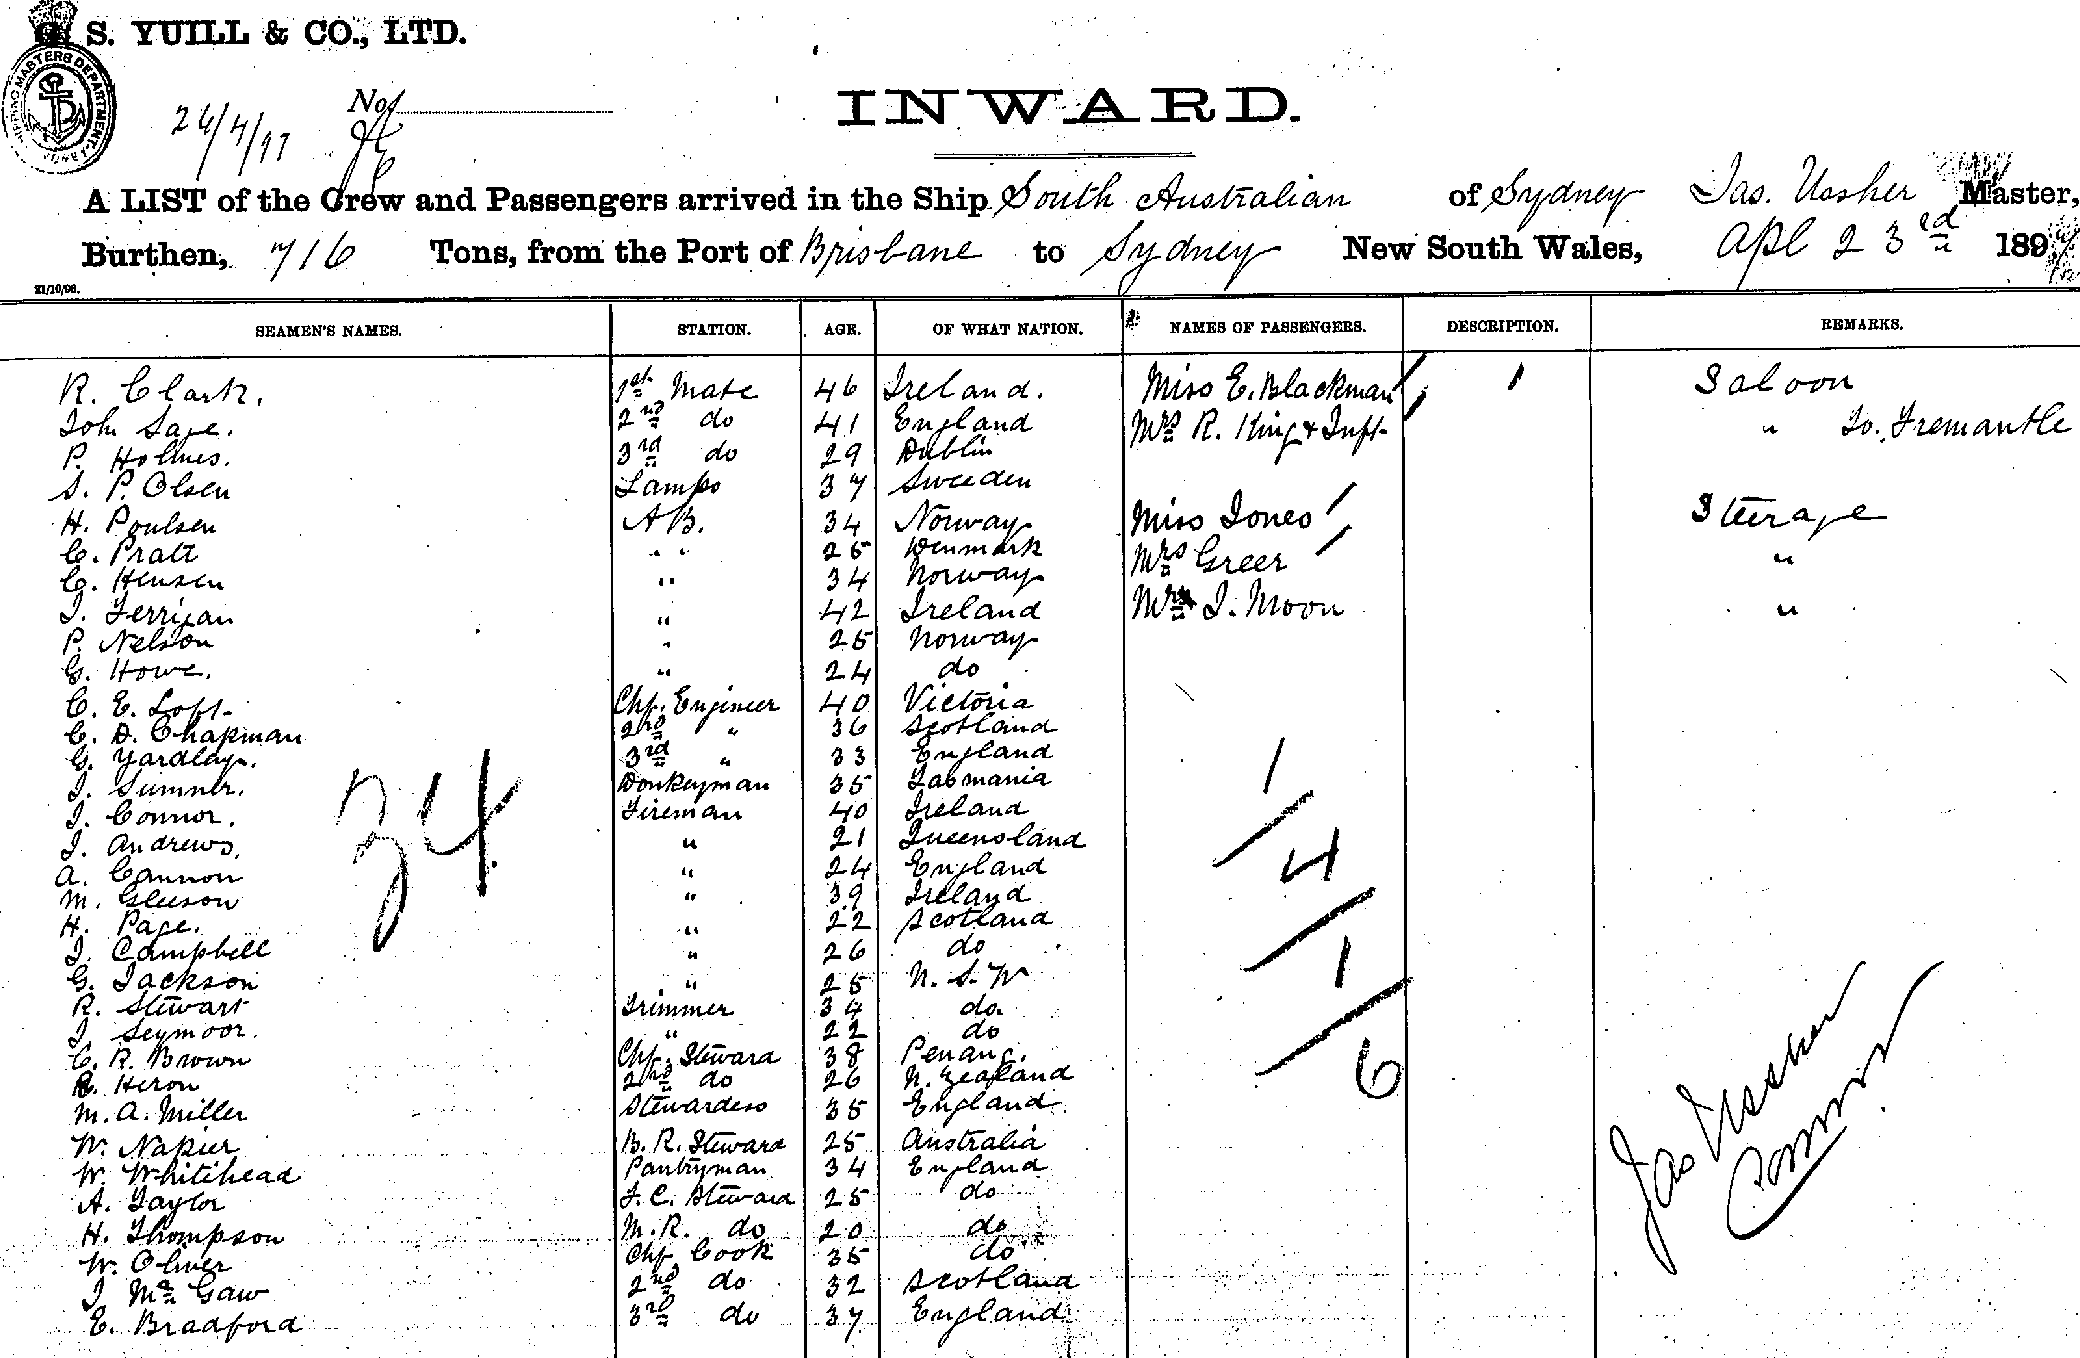 G. S. YUILL & CO., LTD.
SHIPPING MASTERS DEPARTMENT
24/4/97
No.
INWARD.
A LIST of the Crew and Passengers arrived in the Ship South Australian of Sydney Jas. Ussher Master,
Burthen, 716 Tons, from the Port of Brisbane to Sydney New South Wales, Apl 23rd 1897
21/10/96.
SEAMEN'S NAMES. STATION. AGE. OF WHAT NATION. NAMES OF PASSENGERS. DESCRIPTION. REMARKS.
R. Clark. 1st Mate 46 Ireland. Miss E. Blackman 1 Saloon
John Sage. 2nd do 41 England Mrs R. King & Inft. " To Fremantle
P. Holmes. 3rd do 29 Dublin
S. P. Olsen Lamps 37 Sweden
H. Poulsen A B. 34 Norway Miss Jones Steerage
C. Pratt " " 25 Denmark Mrs Greer "
C. Hensen " 34 Norway
J. Ferrigan " 42 Ireland Mrs J. Moon "
P. Nelson " 25 Norway
G. Howe. " 24 do
C. E. Loft. Chf. Engineer 40 Victoria
C. D. Chapman 2nd " 36 Scotland
G. Yardley. 3rd " 33 England
J. Sumner. Donkeyman 35 Tasmania
J. Connor. Fireman 40 Ireland
J. Andrews. " 21 Queensland
A. Cannon " 24 England
M. Gleeson " 39 Ireland
H. Page. " 22 Scotland
J. Campbell " 26 do
G. Jackson " 25 N. S. W
R. Stewart Trimmer 34 do.
J. Seymoor. " 22 do
C. R. Brown Chf. Steward 38 Penang.
R. Heron 2nd do 26 N. Zealand
M. A. Miller Stewardess 35 England
W. Napier B. R. Steward 25 Australia
W. Whitihead Pantryman 34 England
A. Taylor F. C. Steward 25 do
H. Thompson M. R. do 20 do
W. Oliver Chf Cook 35 do
J McGaw 2nd do 32 Scotland
E. Bradford 3rd do 37 England
34
1
4
1
6
Jas Ussher